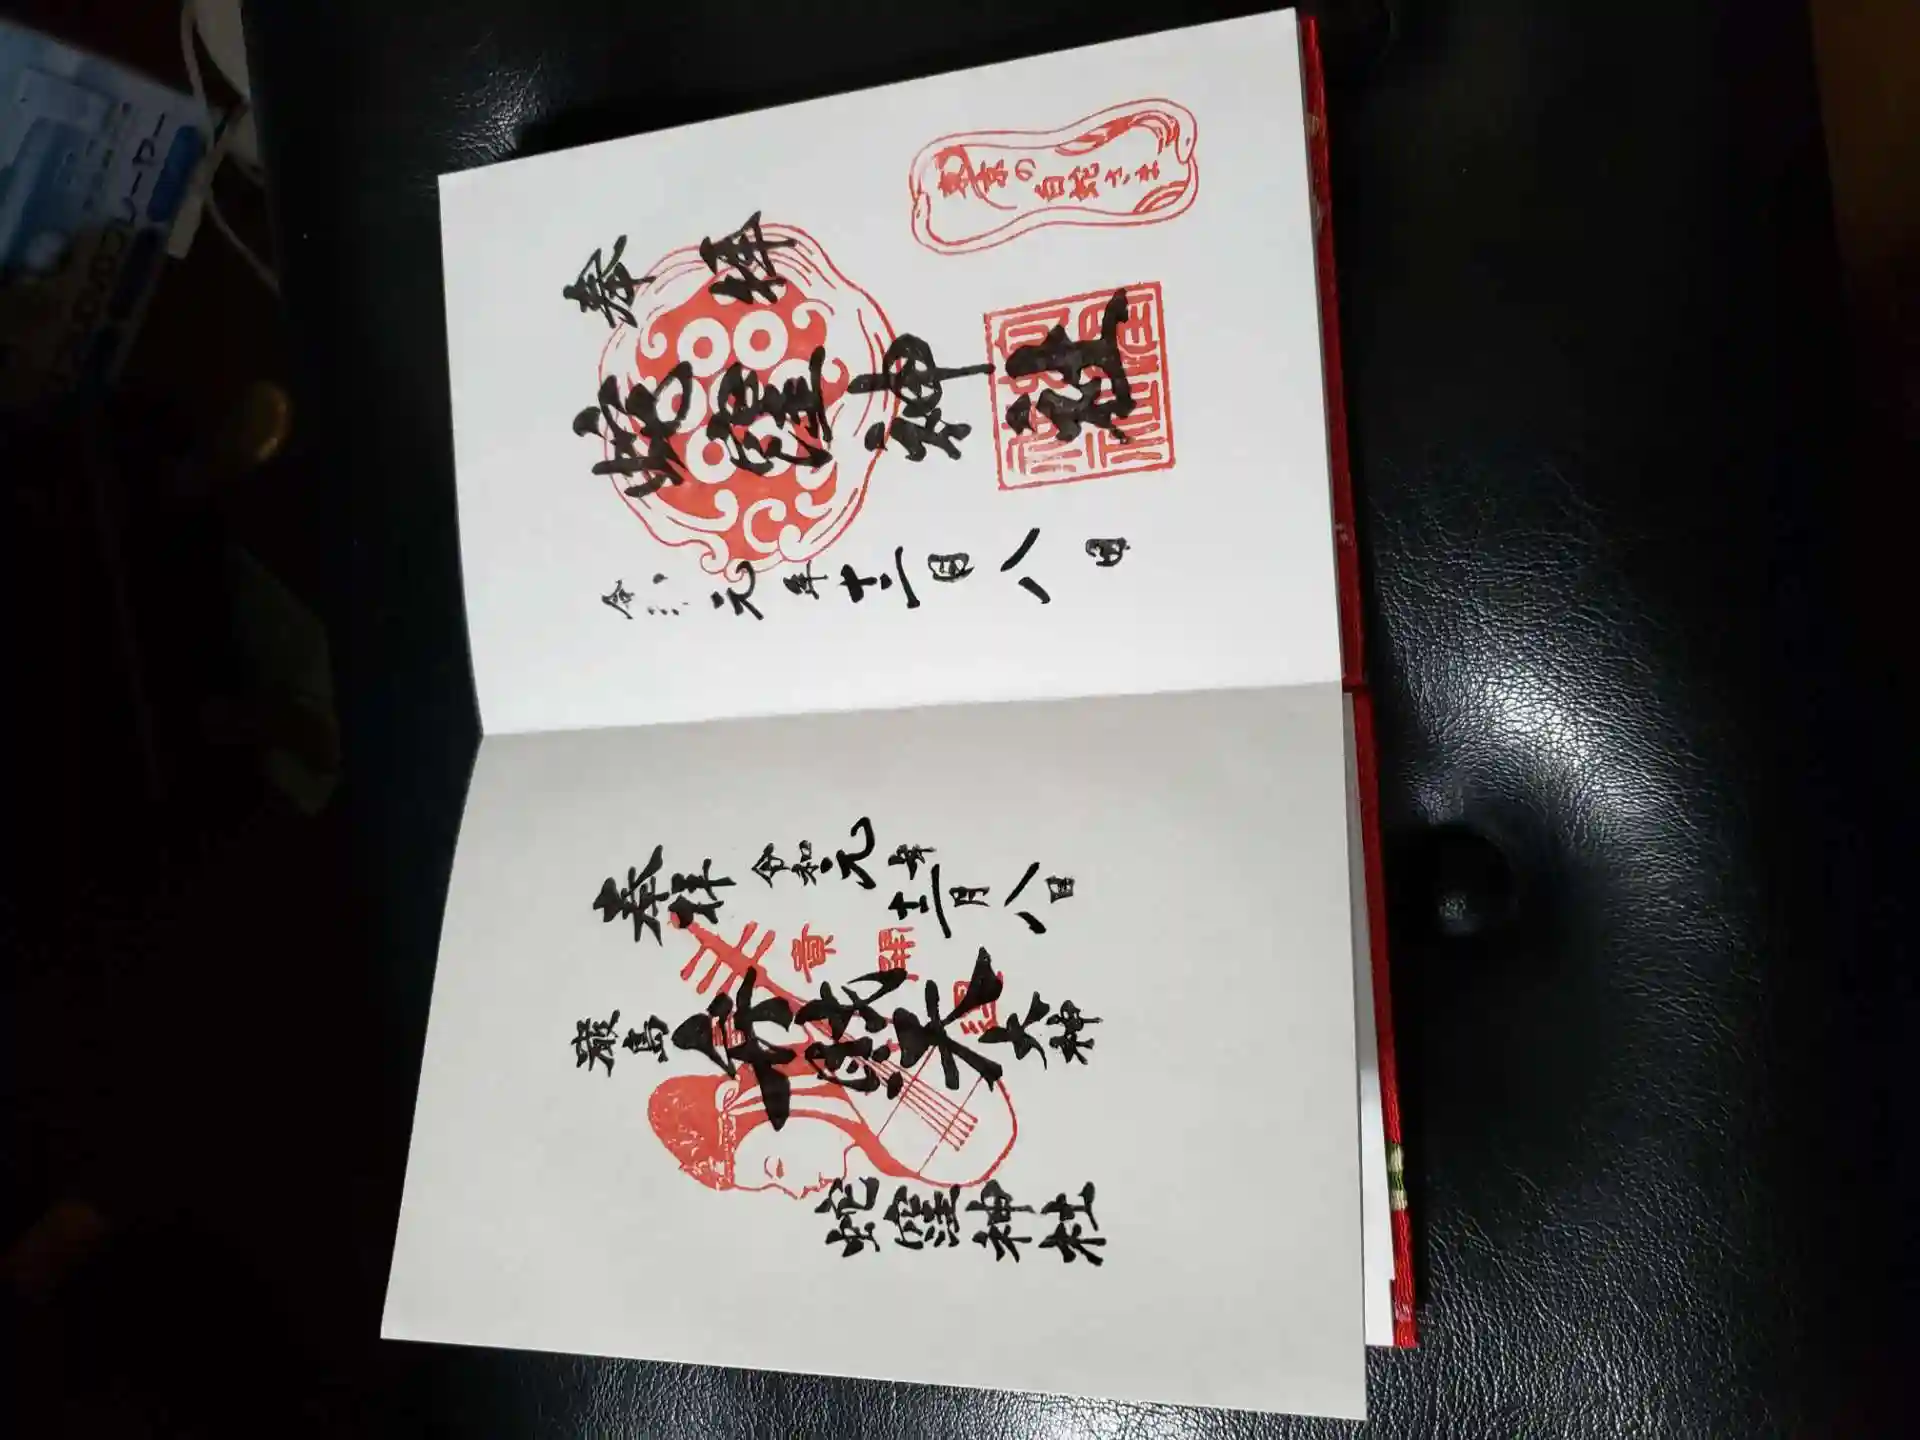 参拝
東京の白蛇さま
蛇窪神社
令和元年十二月八日
奉拝
令和元年十二月八日
厳島弁財天大神
蛇窪神社